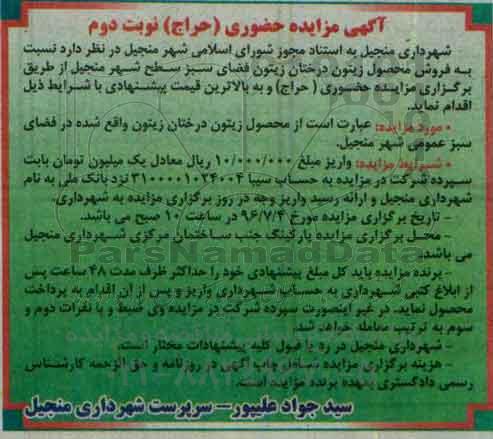 آگهی مزایده حضوری (حراج) نوبت دوم
شهرداری منجیل به استناد مجوز شورای اسلامی شهر منجیل در نظر دارد نسبت
به فروش محصول زیتون درختان زیتون فضای سبز سطح شهر منجیل از طریق
برگزاری مزایده حضوری ( حراج) و به بالاترین قیمت پیشنهادی با شرایط ذیل
اقدام نماید.
• مورد مزایده: عبارت است از محصول زیتون درختان زیتون واقع شده در فضای
سبز عمومی شهر منجیل.
• شرایط مزایده: واریز مبلغ ۱۰/۰۰۰/۰۰۰ ریال معادل یک میلیون تومان بابت
سپرده شرکت در مزایده به حساب سیبا ۳۱۰۰۰۰۱۰۲۴۰۰۴ نزد بانک ملی به نام
شهرداری منجیل و ارائه رسید واریز وجه در روز برگزاری مزایده به شهرداری.
- تاریخ برگزاری مزایده مورخ ۹۶/۷/۴ در ساعت ۱۰ صبح می باشد.
- محل برگزاری مزایده پارکینگ جنب ساختمان مرکزی شهرداری منجیل
می باشد.
ParsNamadData
- برنده مزایده باید کل مبلغ پیشنهادی خود را حداکثر ظرف مدت ۴۸ ساعت پس
از ابلاغ کتبی شهرداری به حساب شهرداری واریز و پس از آن اقدام به برداشت
محصول نماید. در غیر اینصورت سپرده شرکت در مزایده وی ضبط و با نفرات دوم و
سوم به ترتیب معامله خواهد شد.
- شهرداری منجیل در رد یا قبول کلیه پیشنهادات مختار است.
- هزینه برگزاری مزایده شامل چاپ آگهی در روزنامه و حق الزحمه کارشناس
رسمی دادگستری بعهده برنده مزایده است.
سید جواد علیپور - سرپرست شهرداری منجیل